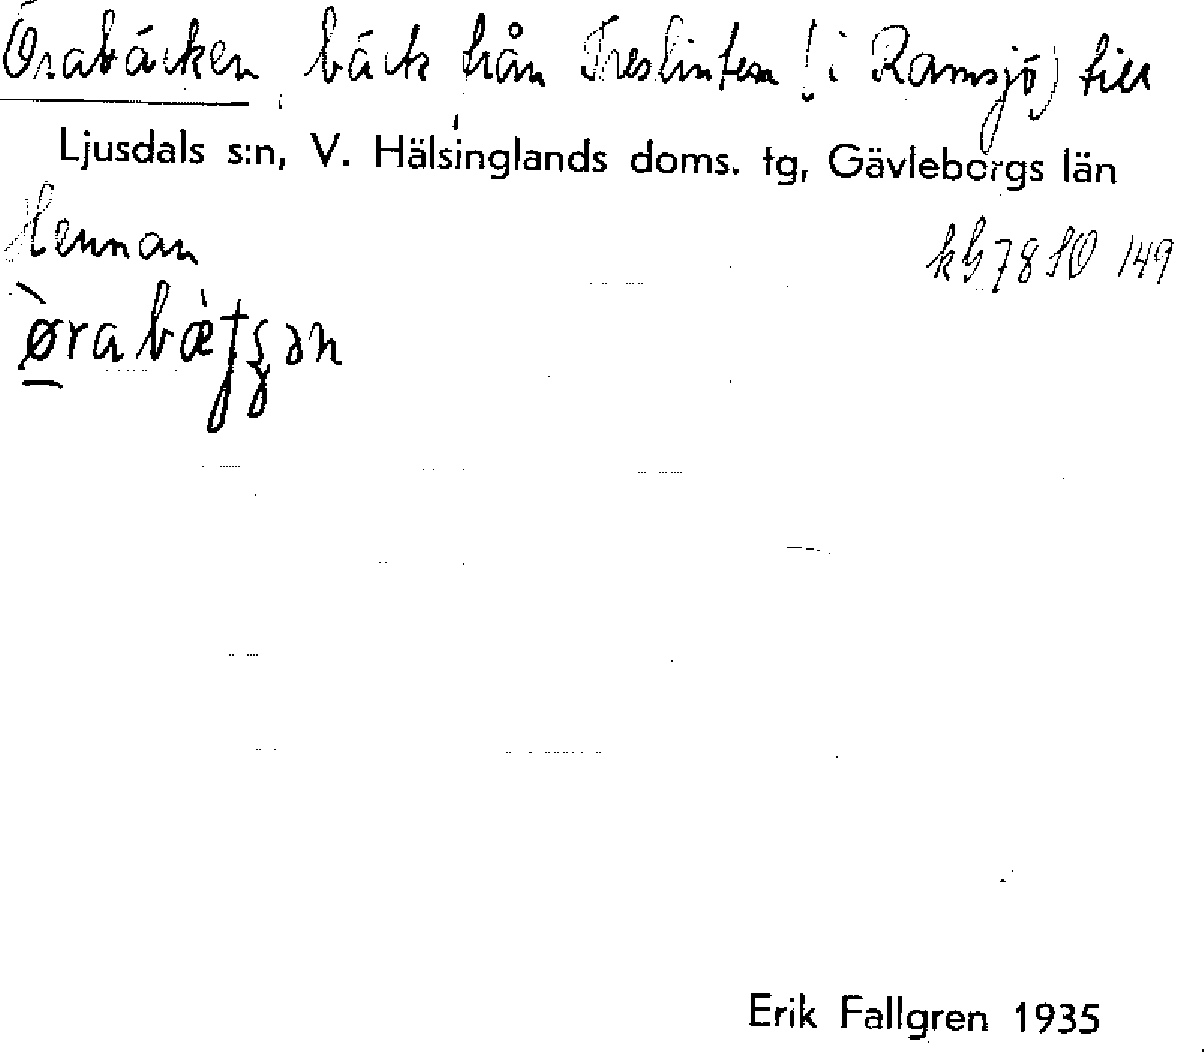 Örabäcken, bäck från Treslinten (i Ramsjö) till
Ljusdals s:n, V. Hälsinglands doms. tg, Gävleborgs län
Hennan
kG7850 149
ø̀rabæ̀tʂən
Erik Fallgren 1935